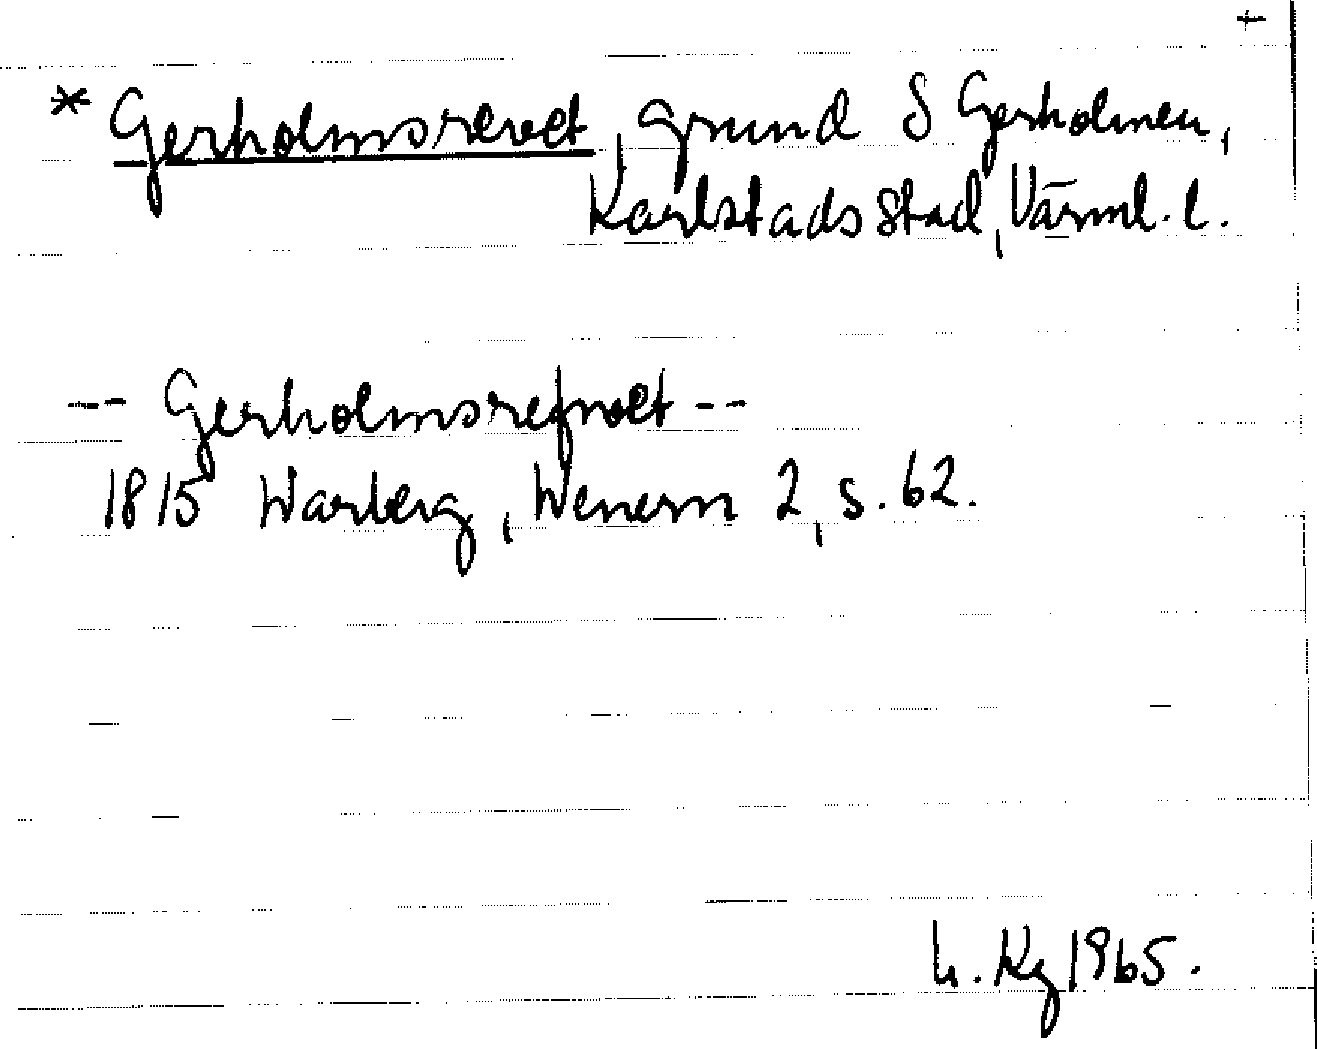 +
* Gerholmsrevet, grund S Gerholmen,
Karlstads stad, Värml. l.
-- Gerholmsrefwet --
1815 Warberg, Wenern 2, s. 62.
h. Kg 1965.